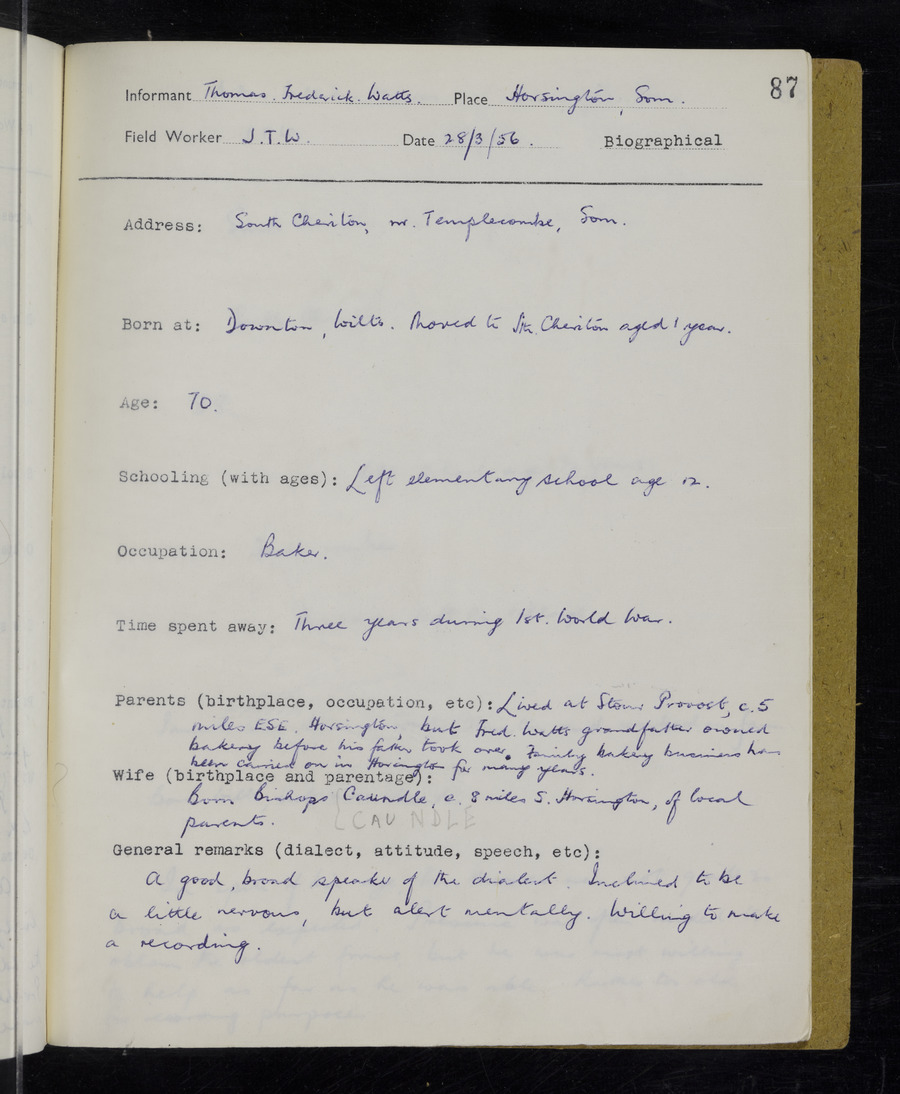 87
Informant Thomas. Frederick. Watts. Place Horsington, Som.
Field Worker J.T.W. Date 28/3/56. Biographical
Address: South Cheriton, nr. Templecombe, Som.
Born at: Downton, Wilts. Moved to Sth. Cheriton aged 1 year.
Age: 70.
Schooling (with ages): Left elementary school age 12.
Occupation: Baker.
Time spent away: Three years during 1st. World War.
Parents (birthplace, occupation, etc): Lived at Stour Provost, c. 5
miles ESE. Horsington, but Fred. Watts grandfather owned
bakery before his father took over. Family bakery business has
been carried on in Horsington for many years.
Wife (birthplace and parentage):
Born Bishops Caundle, c. 8 miles S. Horsington, of local
parents. [CAUNDLE
General remarks (dialect, attitude, speech, etc):
A good, broad speaker of the dialect. Inclined to be
a little nervous, but alert mentally. Willing to make
a recording.